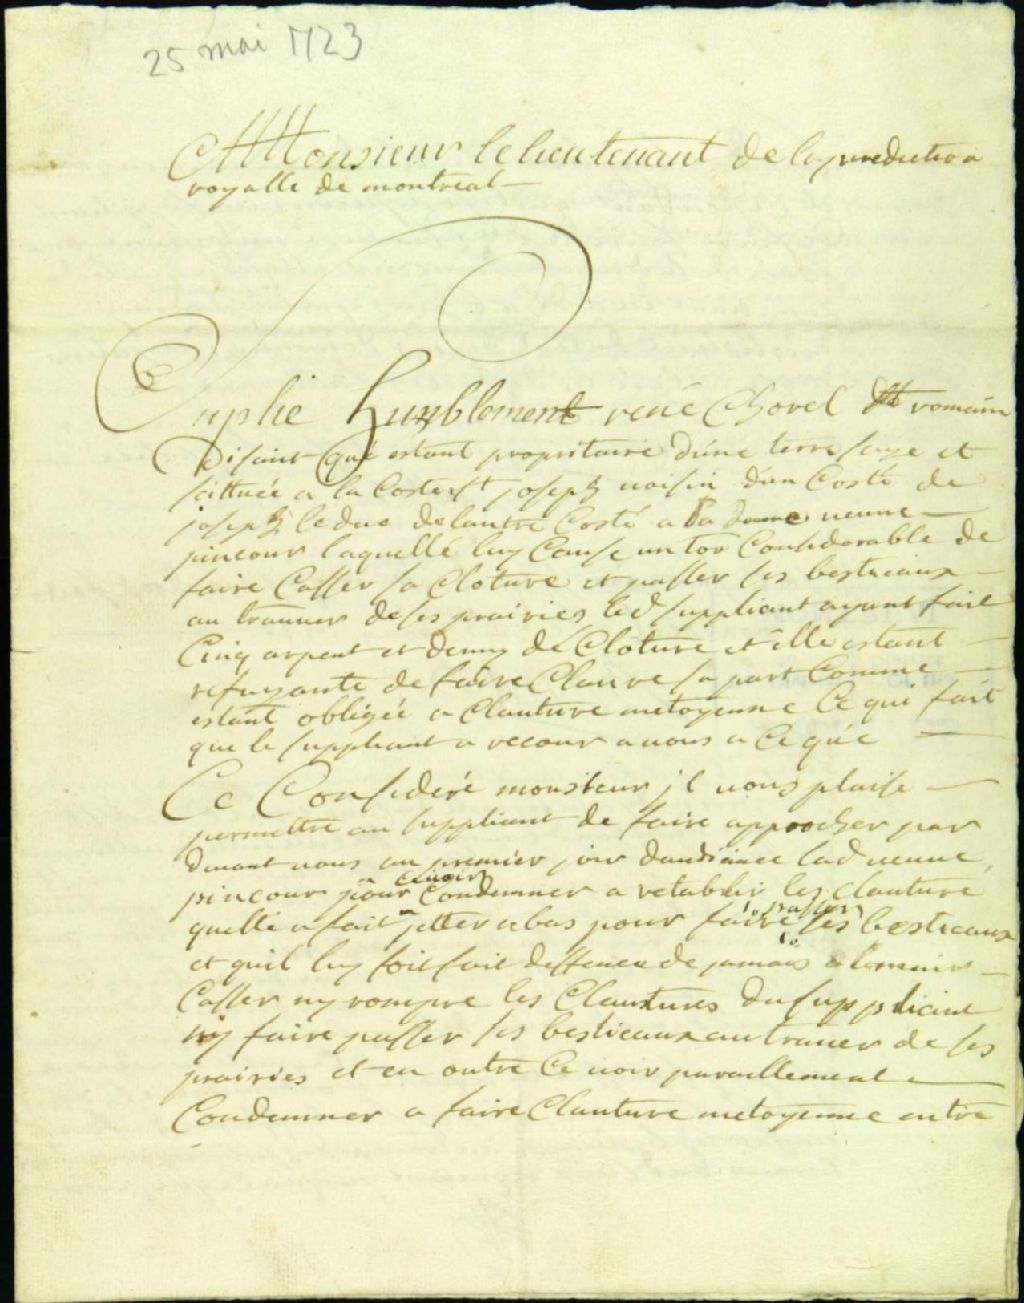 25 mai 1723
A Monsieur le lieutenant de la juredection
royalle de montreal
Suplie humblement rené Chorel St romain
disant qué estant propriétaire d'une terre size et
scittuée a la Coste st joseph voisin d'un Costé de
joseph leduc de lautre Costé a la veuve
pincour laquellé luy Cause un tor Considerable de
faire Casser sa Cloture et passer ses bestieaux
au travver de ses prairies led suppliant ayant fait
Cinq arpent et demy de Cloture et elle estant
refuzante de faire Clorre sa part Comme
estant obligée a Clauture metoyenne Ce qui fait
que le suppliant a recour a vous a Ce qué
Ce Consideré monsieur jl vous plaise
permettre au suppliant de faire approcher par
devant vous au premier jour daudiance lad veuve
pincour pour ce voir Condemner a retablir les Clauture
quelle a fait jetter a bas pour faire passer ses bestieaux
et quil luy soit fait deffence de jamais a lavenir
Casser ny rompre les Clautures du suppliant
ny faire passer ses bestieaux au traver de ses
prairies et en outre Ce voir pareillement
Condemner a faire Clauture metoyenne entre